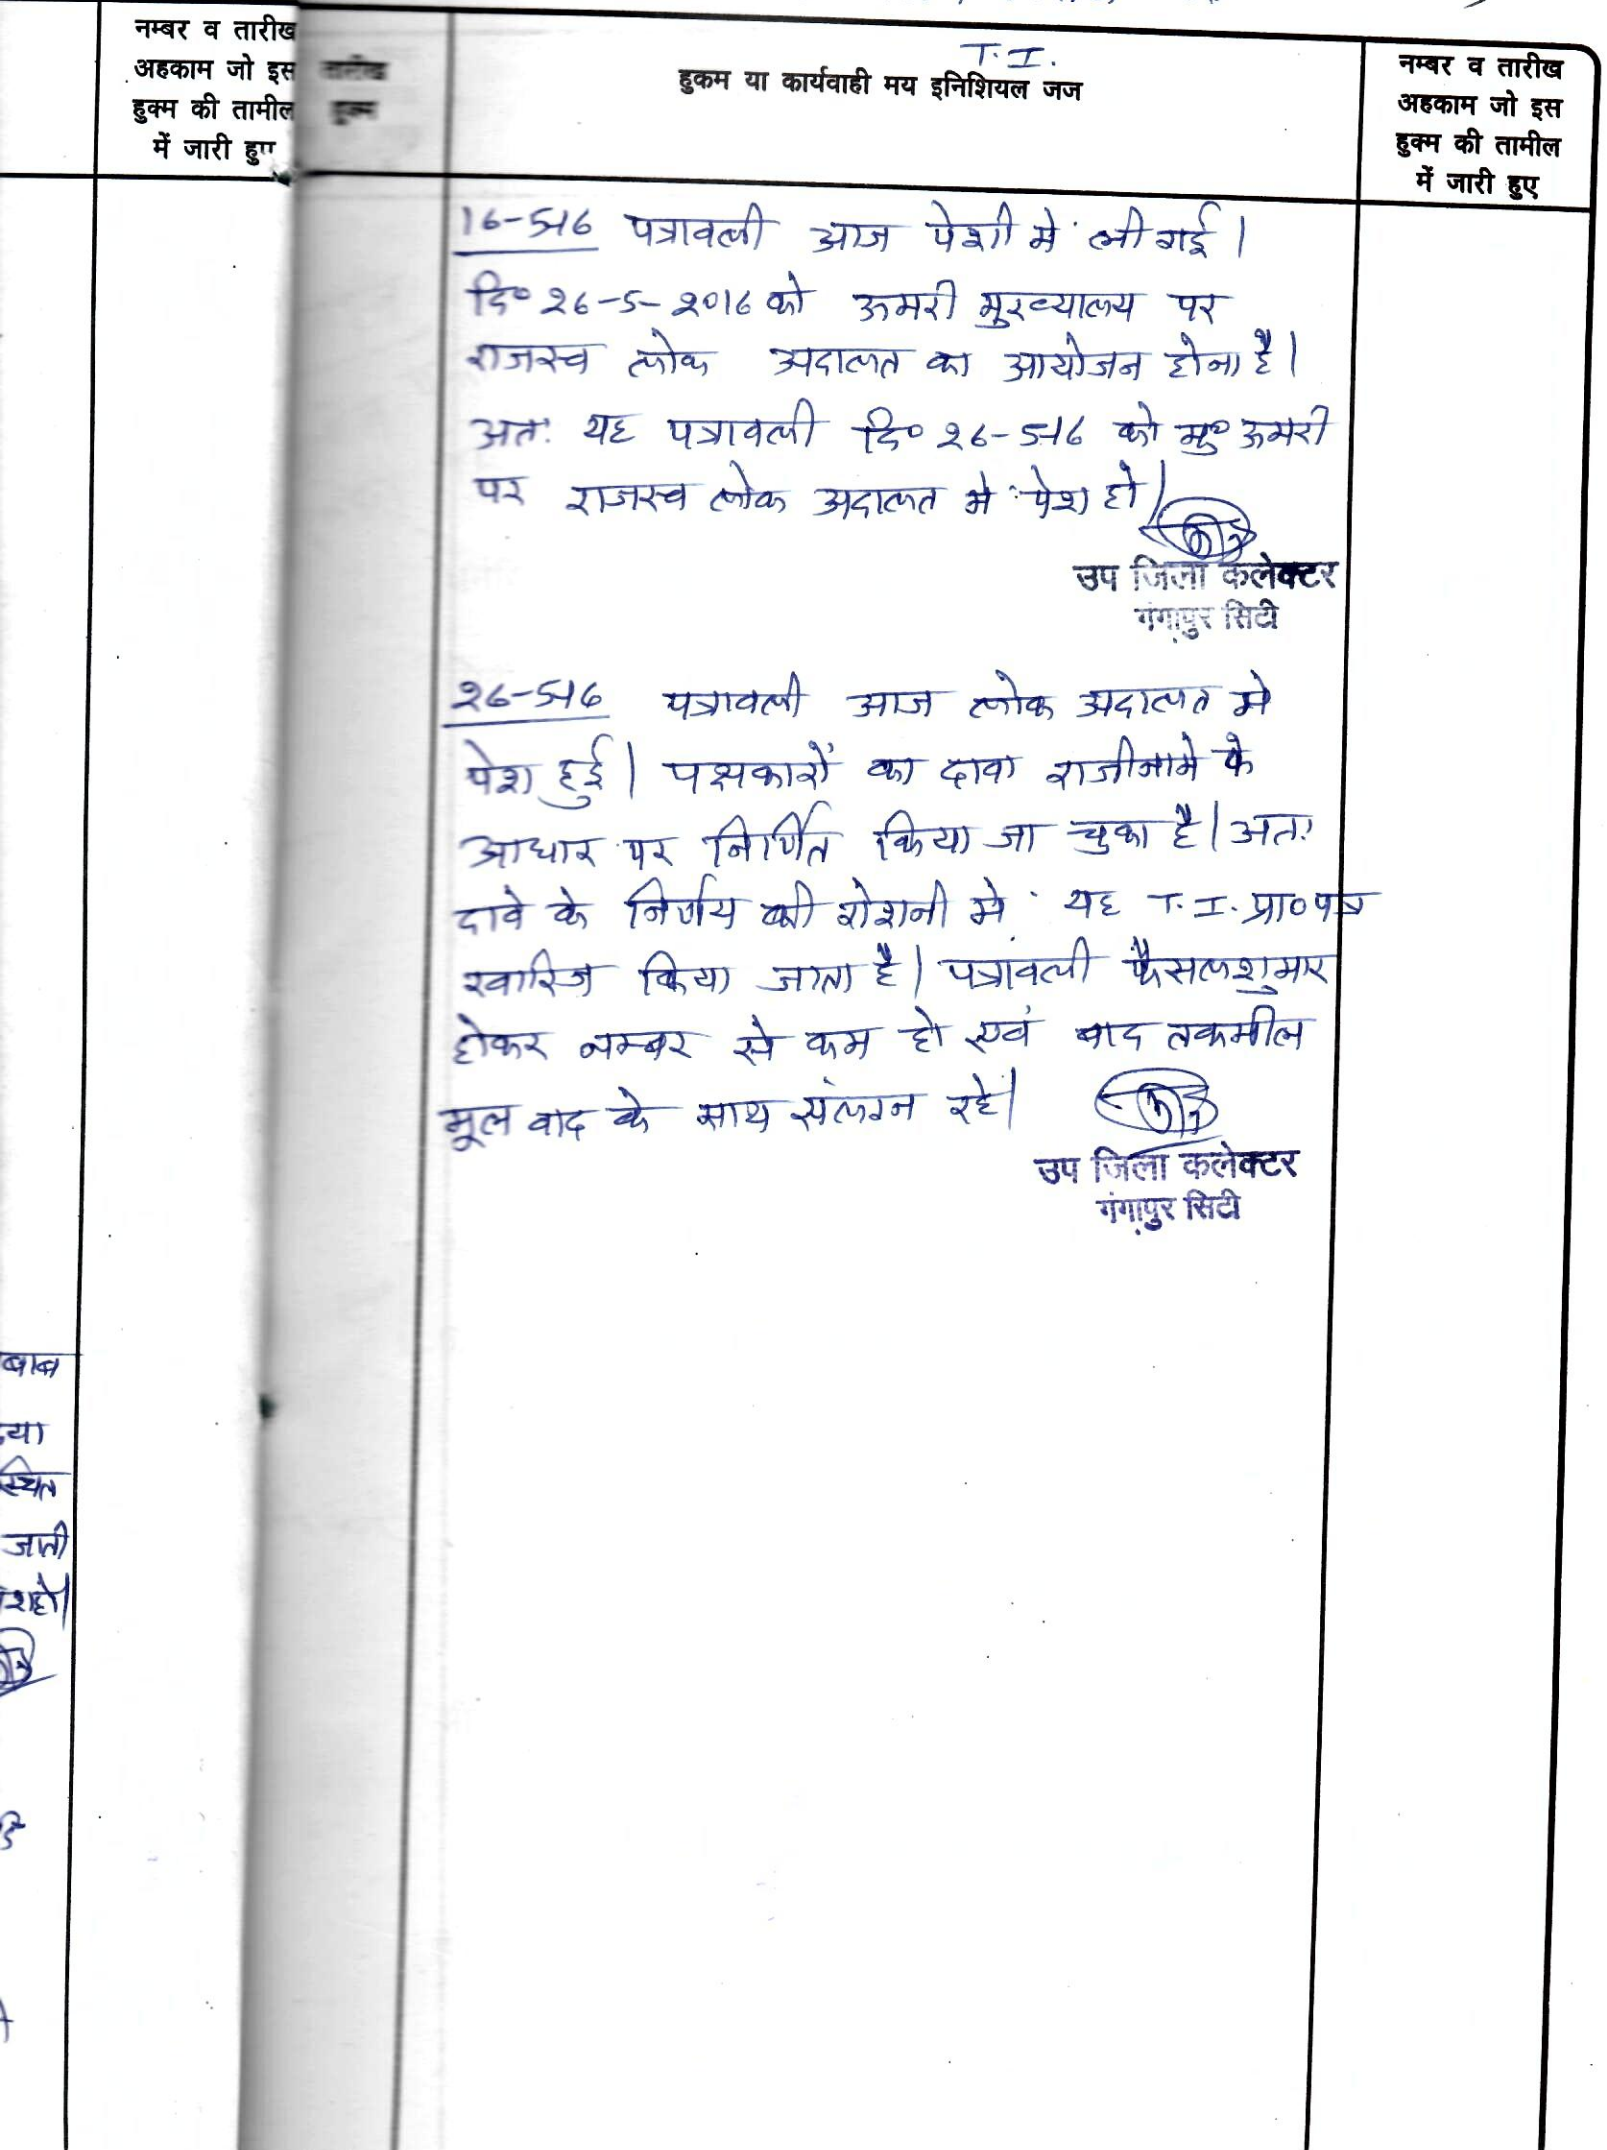 नम्बर व तारीख
अहकाम जो इस
हुक्म की तामील
में जारी हुए
तारीख
हुक्म
T. I.
हुकम या कार्यवाही मय इनिशियल जज
नम्बर व तारीख
अहकाम जो इस
हुक्म की तामील
में जारी हुए
16-5-16 पत्रावली आज पेशी में ली गई।
दि० २6-5-२०16 को ऊमरी मुख्यालय पर
राजस्व लोक अदालत का आयोजन होना है।
अतः यह पत्रावली दि० २6-5-16 को मु० ऊमरी
पर राजस्व लोक अदालत में पेश हो।
उप जिला कलेक्टर
गंगापुर सिटी
२6-5-16 पत्रावली आज लोक अदालत में
पेश हुई। पक्षकारों का दावा राजीनामे के
आधार पर निर्णित किया जा चुका है। अतः
दावे के निर्णय की रोशनी में यह T. I. प्रा० पत्र
खारिज किया जाता है। पत्रावली फैसलशुमार
होकर नम्बर से कम हो एवं बाद तकमील
मूल वाद के साथ संलग्न रहे।
उप जिला कलेक्टर
गंगापुर सिटी
जाती